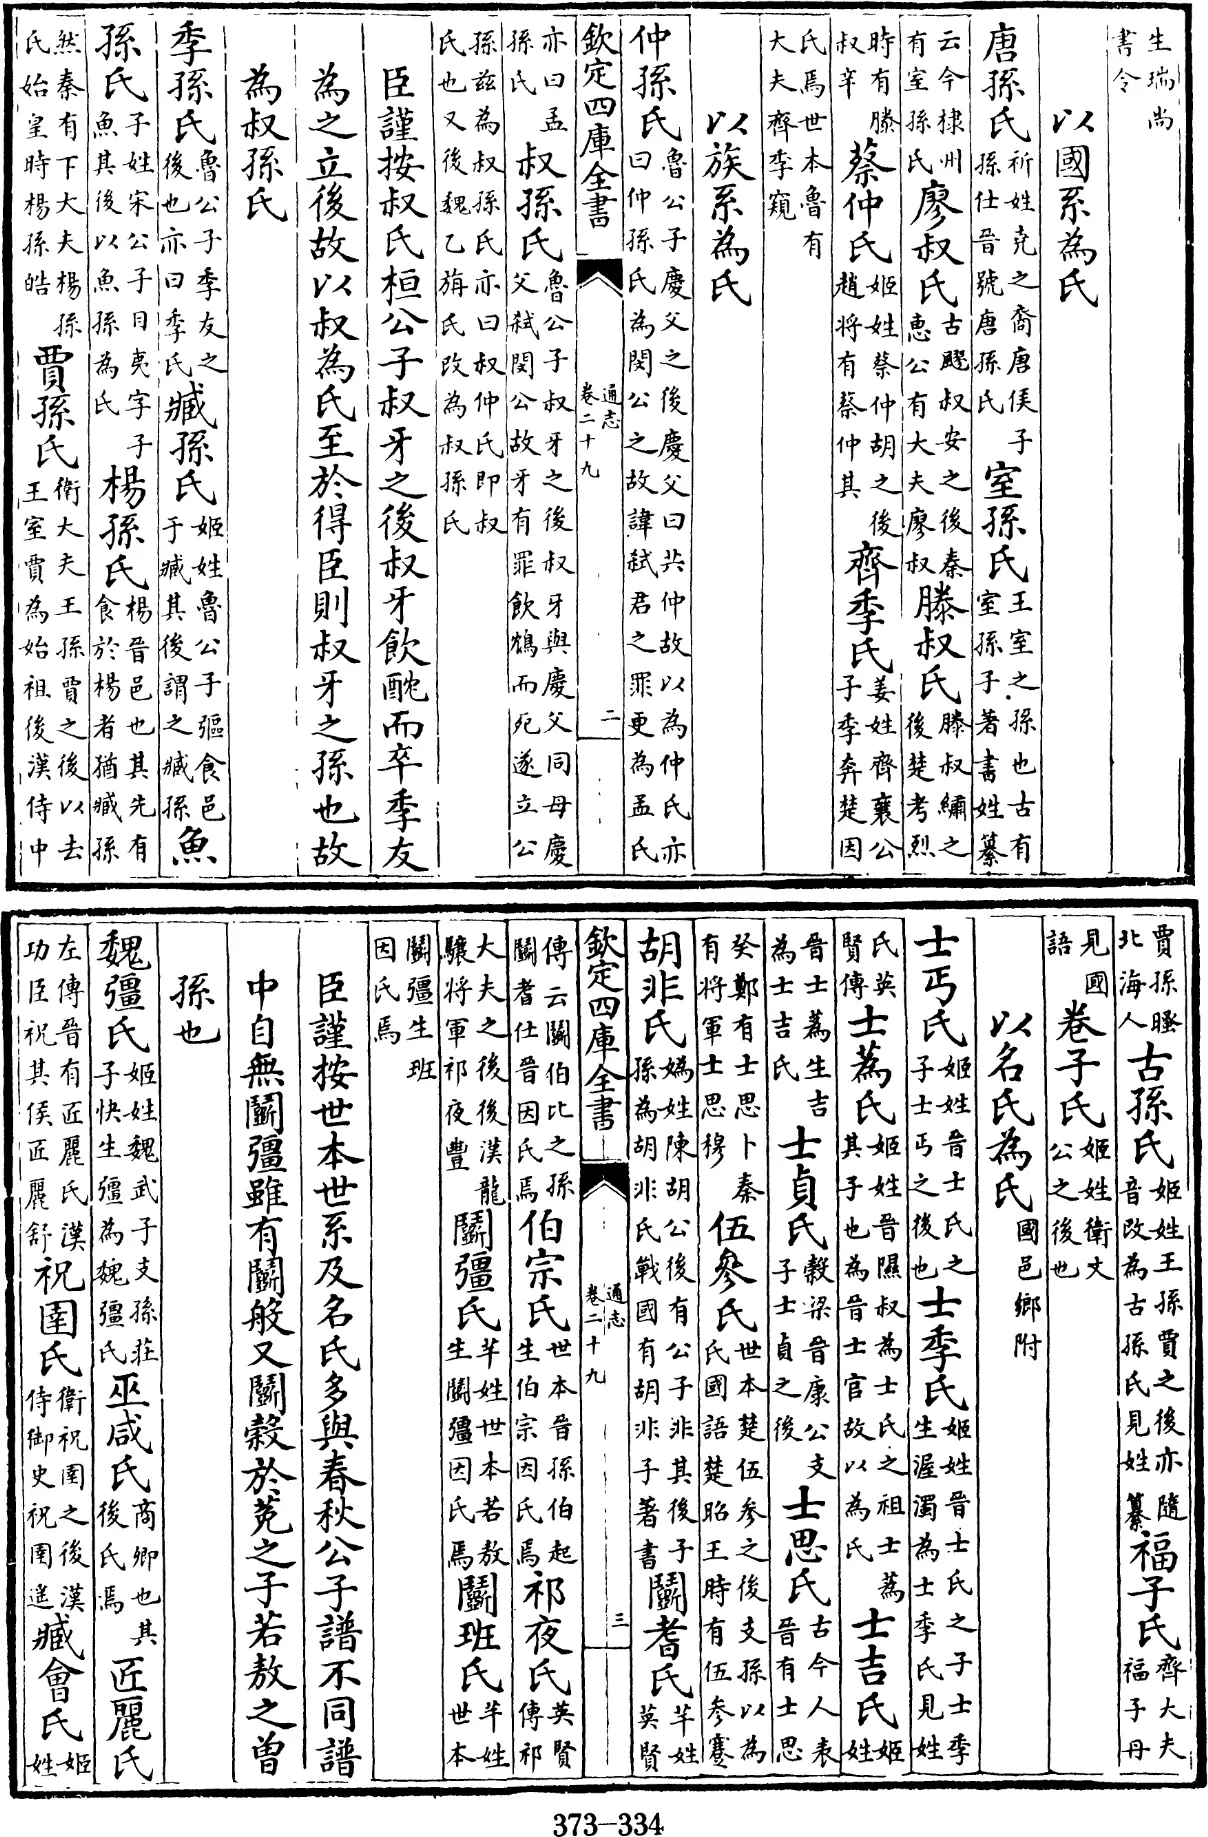 生瑞尚書令
以國系為氏
唐孫氏祈姓堯之裔唐侯子孫仕晉號唐孫氏室孫氏王室之孫也古有室孫子著書姓纂
云今棣州有室孫氏廖叔氏古飂叔安之後秦惠公有大夫廖叔滕叔氏滕叔繡之後楚考烈
時有滕叔辛蔡仲氏姬姓蔡仲胡之後趙將有蔡仲其齊季氏姜姓齊襄公子季奔楚因
氏焉世本魯有大夫齊季窺
以族系為氏
仲孫氏魯公子慶父之後慶父曰共仲故以為仲氏亦曰仲孫氏為閔公之故諱弑君之罪更為孟氏
欽定四庫全書 通志卷二十九 二
亦曰孟孫氏叔孫氏魯公子叔牙之後叔牙與慶父同母慶父弑閔公故牙有罪飲鴆而死遂立公
孫茲為叔孫氏亦曰叔仲氏即叔氏也又後魏乙旃氏改為叔孫氏
臣謹按叔氏桓公子叔牙之後叔牙飲酖而卒季友
為之立後故以叔為氏至於得臣則叔牙之孫也故
為叔孫氏
季孫氏魯公子季友之後也亦曰季氏臧孫氏姬姓魯公子彄食邑于臧其後謂之臧孫魚
孫氏子姓宋公子目夷字子魚其後以魚孫為氏楊孫氏楊晉邑也其先有食於楊者猶臧孫
然秦有下大夫楊孫氏始皇時楊孫皓賈孫氏衛大夫王孫賈之後以去王室賈為始祖後漢侍中
賈孫騷北海人古孫氏姬姓王孫賈之後亦隨音改為古孫氏見姓纂福子氏齊大夫福子丹
見國語卷子氏姬姓衛文公之後也
以名氏為氏國邑鄉附
士丐氏姬姓晉士氏之子士丐之後也士季氏姬姓晉士氏之子士季生渥濁為士季氏見姓
氏英賢傳士蒍氏姬姓晉隰叔為士氏之祖士蒍其子也為晉士官故以為氏士吉氏姬姓
晉士蒍生吉為士吉氏士貞氏穀梁晉康公支子士貞之後士思氏古今人表晉有士思
癸鄭有士思卜秦有將軍士思穆伍參氏世本楚伍參之後支孫以為氏國語楚昭王時有伍參蹇
胡非氏媯姓陳胡公後有公子非其後子孫為胡非氏戰國有胡非子著書鬬耆氏芊姓英賢
欽定四庫全書 通志卷二十九 三
傳云鬬伯比之孫鬬耆仕晉因氏焉伯宗氏世本晉孫伯起生伯宗因氏焉祁夜氏英賢傳祁
大夫之後後漢龍驤將軍祁夜豐鬬彊氏芊姓世本若敖生鬬彊因氏焉鬬班氏芊姓世本
鬬彊生班因氏焉
臣謹按世本世系及名氏多與春秋公子譜不同譜
中自無鬬彊雖有鬬般又鬬穀於菟之子若敖之曾
孫也
魏彊氏姬姓魏武子支孫莊子快生彊為魏彊氏巫咸氏商卿也其後氏焉匠麗氏
左傳晉有匠麗氏漢功臣祝其侯匠麗舒祝圉氏衛祝圉之後漢侍御史祝圉遙臧會氏姬姓
373-334